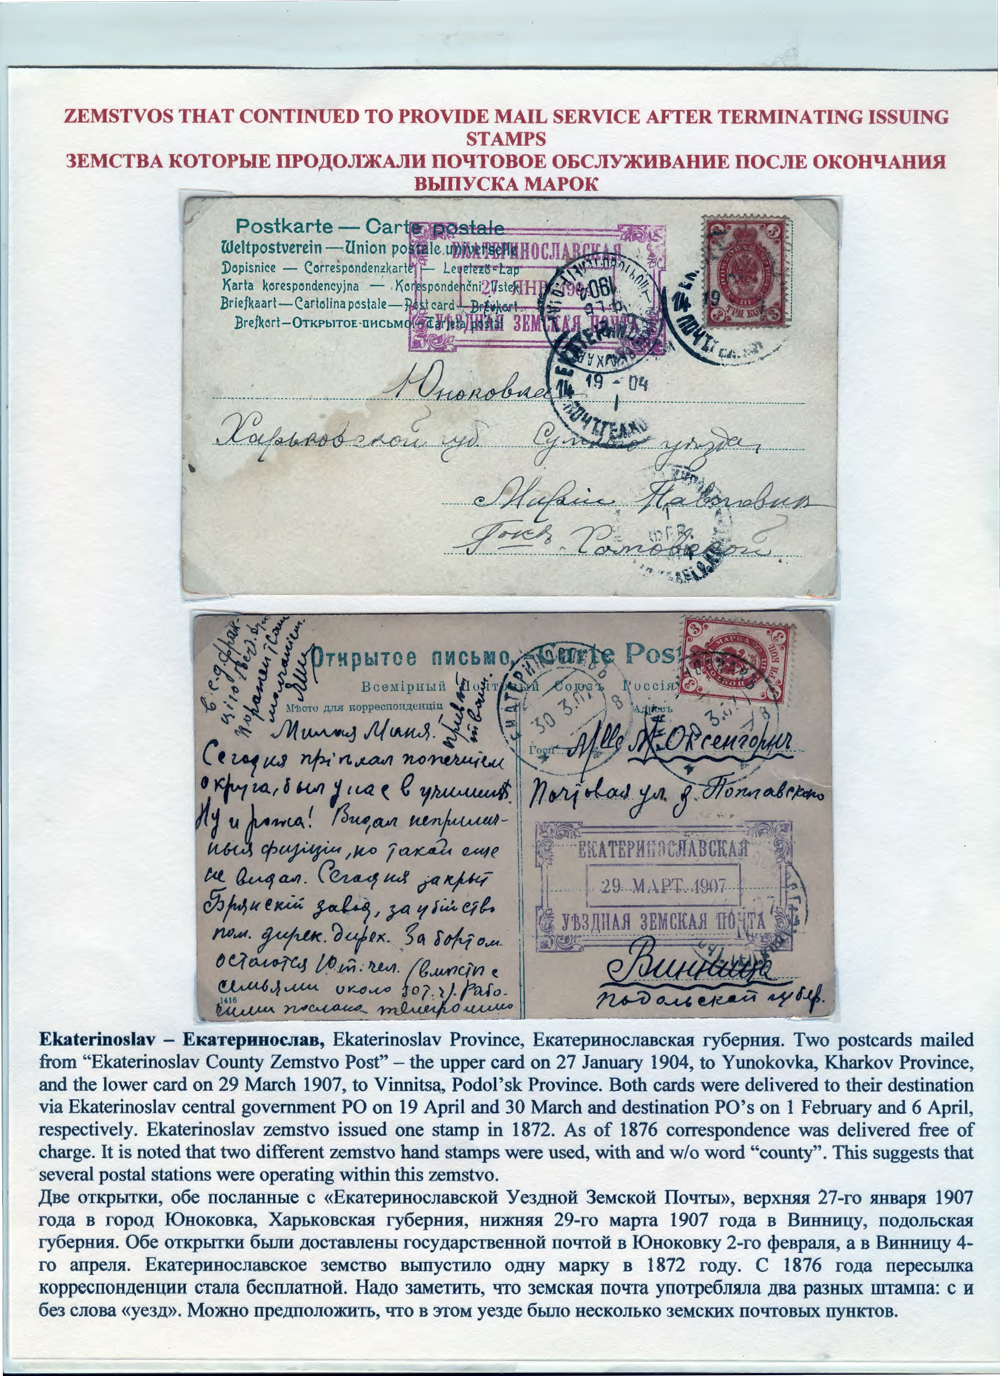 ZEMSTVOS THAT CONTINUED TO PROVIDE MAIL SERVICE AFTER TERMINATING ISSUING
STAMPS
ЗЕМСТВА КОТОРЫЕ ПРОДОЛЖАЛИ ПОЧТОВОЕ ОБСЛУЖИВАНИЕ ПОСЛЕ ОКОНЧАНИЯ
ВЫПУСКА МАРОК
Postkarte — Carte postale
Weltpostverein — Union postale universelle
Dopisnice — Correspondenzkarte — Levelező-Lap
Karta korespondencyjna — Korespondenční lístek
Briefkaart — Cartolina postale — Post card — Brevkort
Brefkort — Открытое письмо — Tarjeta postal
ЕКАТЕРИНОСЛАВСКАЯ
27 ЯНР 190
УѢЗДНАЯ ЗЕМСКАЯ ПОЧТА
1904
14 ЕКАТЕРИН
19 - 04
I
ПОЧ.ТЕЛ.КО
3 3
ТРИ КОП
14 ЕК
19
Юноковка
Харьковской губ. Сумско уезда,
Маріи Павловны
Гжѣ Хотовской
1
ФЕВ.
Открытое письмо. Carte Post
Всемірный Почтовый Союзъ Россія
Мѣсто для корреспонденціи Адресъ
Госп.
ЕКАТЕРИНОСЛАВЪ
30 3.07
8
3 3
МАРКА
30 3.07
8
привѣт
Милая Маня.
Сегодня пріѣхал попечител
округа, был у нас в училищѣ.
Ну и рожа! Видал неприлич-
ныя физіи, но такой еще
не видал. Сегодня закрыт
Брянскій завод, за убійство
пом. дирек. дирек. За бортом
остаются 10 т. чел. (вмѣстѣ с
семьями около 30 т. ч). Рабо-
чими послана телеграмма
1416
Mlle М. Оксенгорнъ
Почтовая ул. д. Поплавского
ЕКАТЕРИНОСЛАВСКАЯ
29 МАРТ. 1907
УѢЗДНАЯ ЗЕМСКАЯ ПОЧТА
Винница
Подольской губер.
Ekaterinoslav – Екатеринослав, Ekaterinoslav Province, Екатеринославская губерния. Two postcards mailed
from “Ekaterinoslav County Zemstvo Post” – the upper card on 27 January 1904, to Yunokovka, Kharkov Province,
and the lower card on 29 March 1907, to Vinnitsa, Podol’sk Province. Both cards were delivered to their destination
via Ekaterinoslav central government PO on 19 April and 30 March and destination PO’s on 1 February and 6 April,
respectively. Ekaterinoslav zemstvo issued one stamp in 1872. As of 1876 correspondence was delivered free of
charge. It is noted that two different zemstvo hand stamps were used, with and w/o word “county”. This suggests that
several postal stations were operating within this zemstvo.
Две открытки, обе посланные с «Екатеринославской Уездной Земской Почты», верхняя 27-го января 1907
года в город Юноковка, Харьковская губерния, нижняя 29-го марта 1907 года в Винницу, подольская
губерния. Обе открытки были доставлены государственной почтой в Юноковку 2-го февраля, а в Винницу 4-
го апреля. Екатеринославское земство выпустило одну марку в 1872 году. С 1876 года пересылка
корреспонденции стала бесплатной. Надо заметить, что земская почта употребляла два разных штампа: с и
без слова «уезд». Можно предположить, что в этом уезде было несколько земских почтовых пунктов.